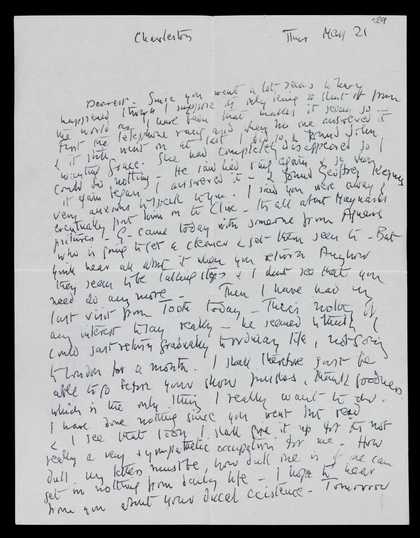 129
Charleston Thurs May 21
Dearest - Since you went a lot seems to have
happened though I suppose it's only being so shut off from
the world as I have been that makes it seem so -
First the telephone rang and when no one answered it
& it still went on at last I did so & found John
wanting Grace. She had completely disappeared so I
could do nothing - He said he'd ring again & so when
it rang again I answered it - & found Geoffrey Keynes
very anxious to speak to you - I said you were away &
eventually put him on to Clive - It's all about Maynard's
pictures - G. came today with someone from Agnews
who is going to get a cleaner & get them seen to - But
you'll hear all about it when you return Anyhow
they seem to be taking steps & I don't see that you
need do any more - Then I have had my
last visit from Tooth today - There's nothing of
any interest to say really - he seemed to think I
could just return gradually to ordinary life, not going
to London for a month. I shall therefore just be
able to go before your show finishes, thank goodness
which is the only thing I really want to do.
I have done nothing since you went but read
& I see that soon I shall give it up for it's not
really a very sympathetic occupation for me - How
dull my letters must be, how dull one is if one can
get in nothing from daily life - I hope to hear
from you about your ducal existence - Tomorrow